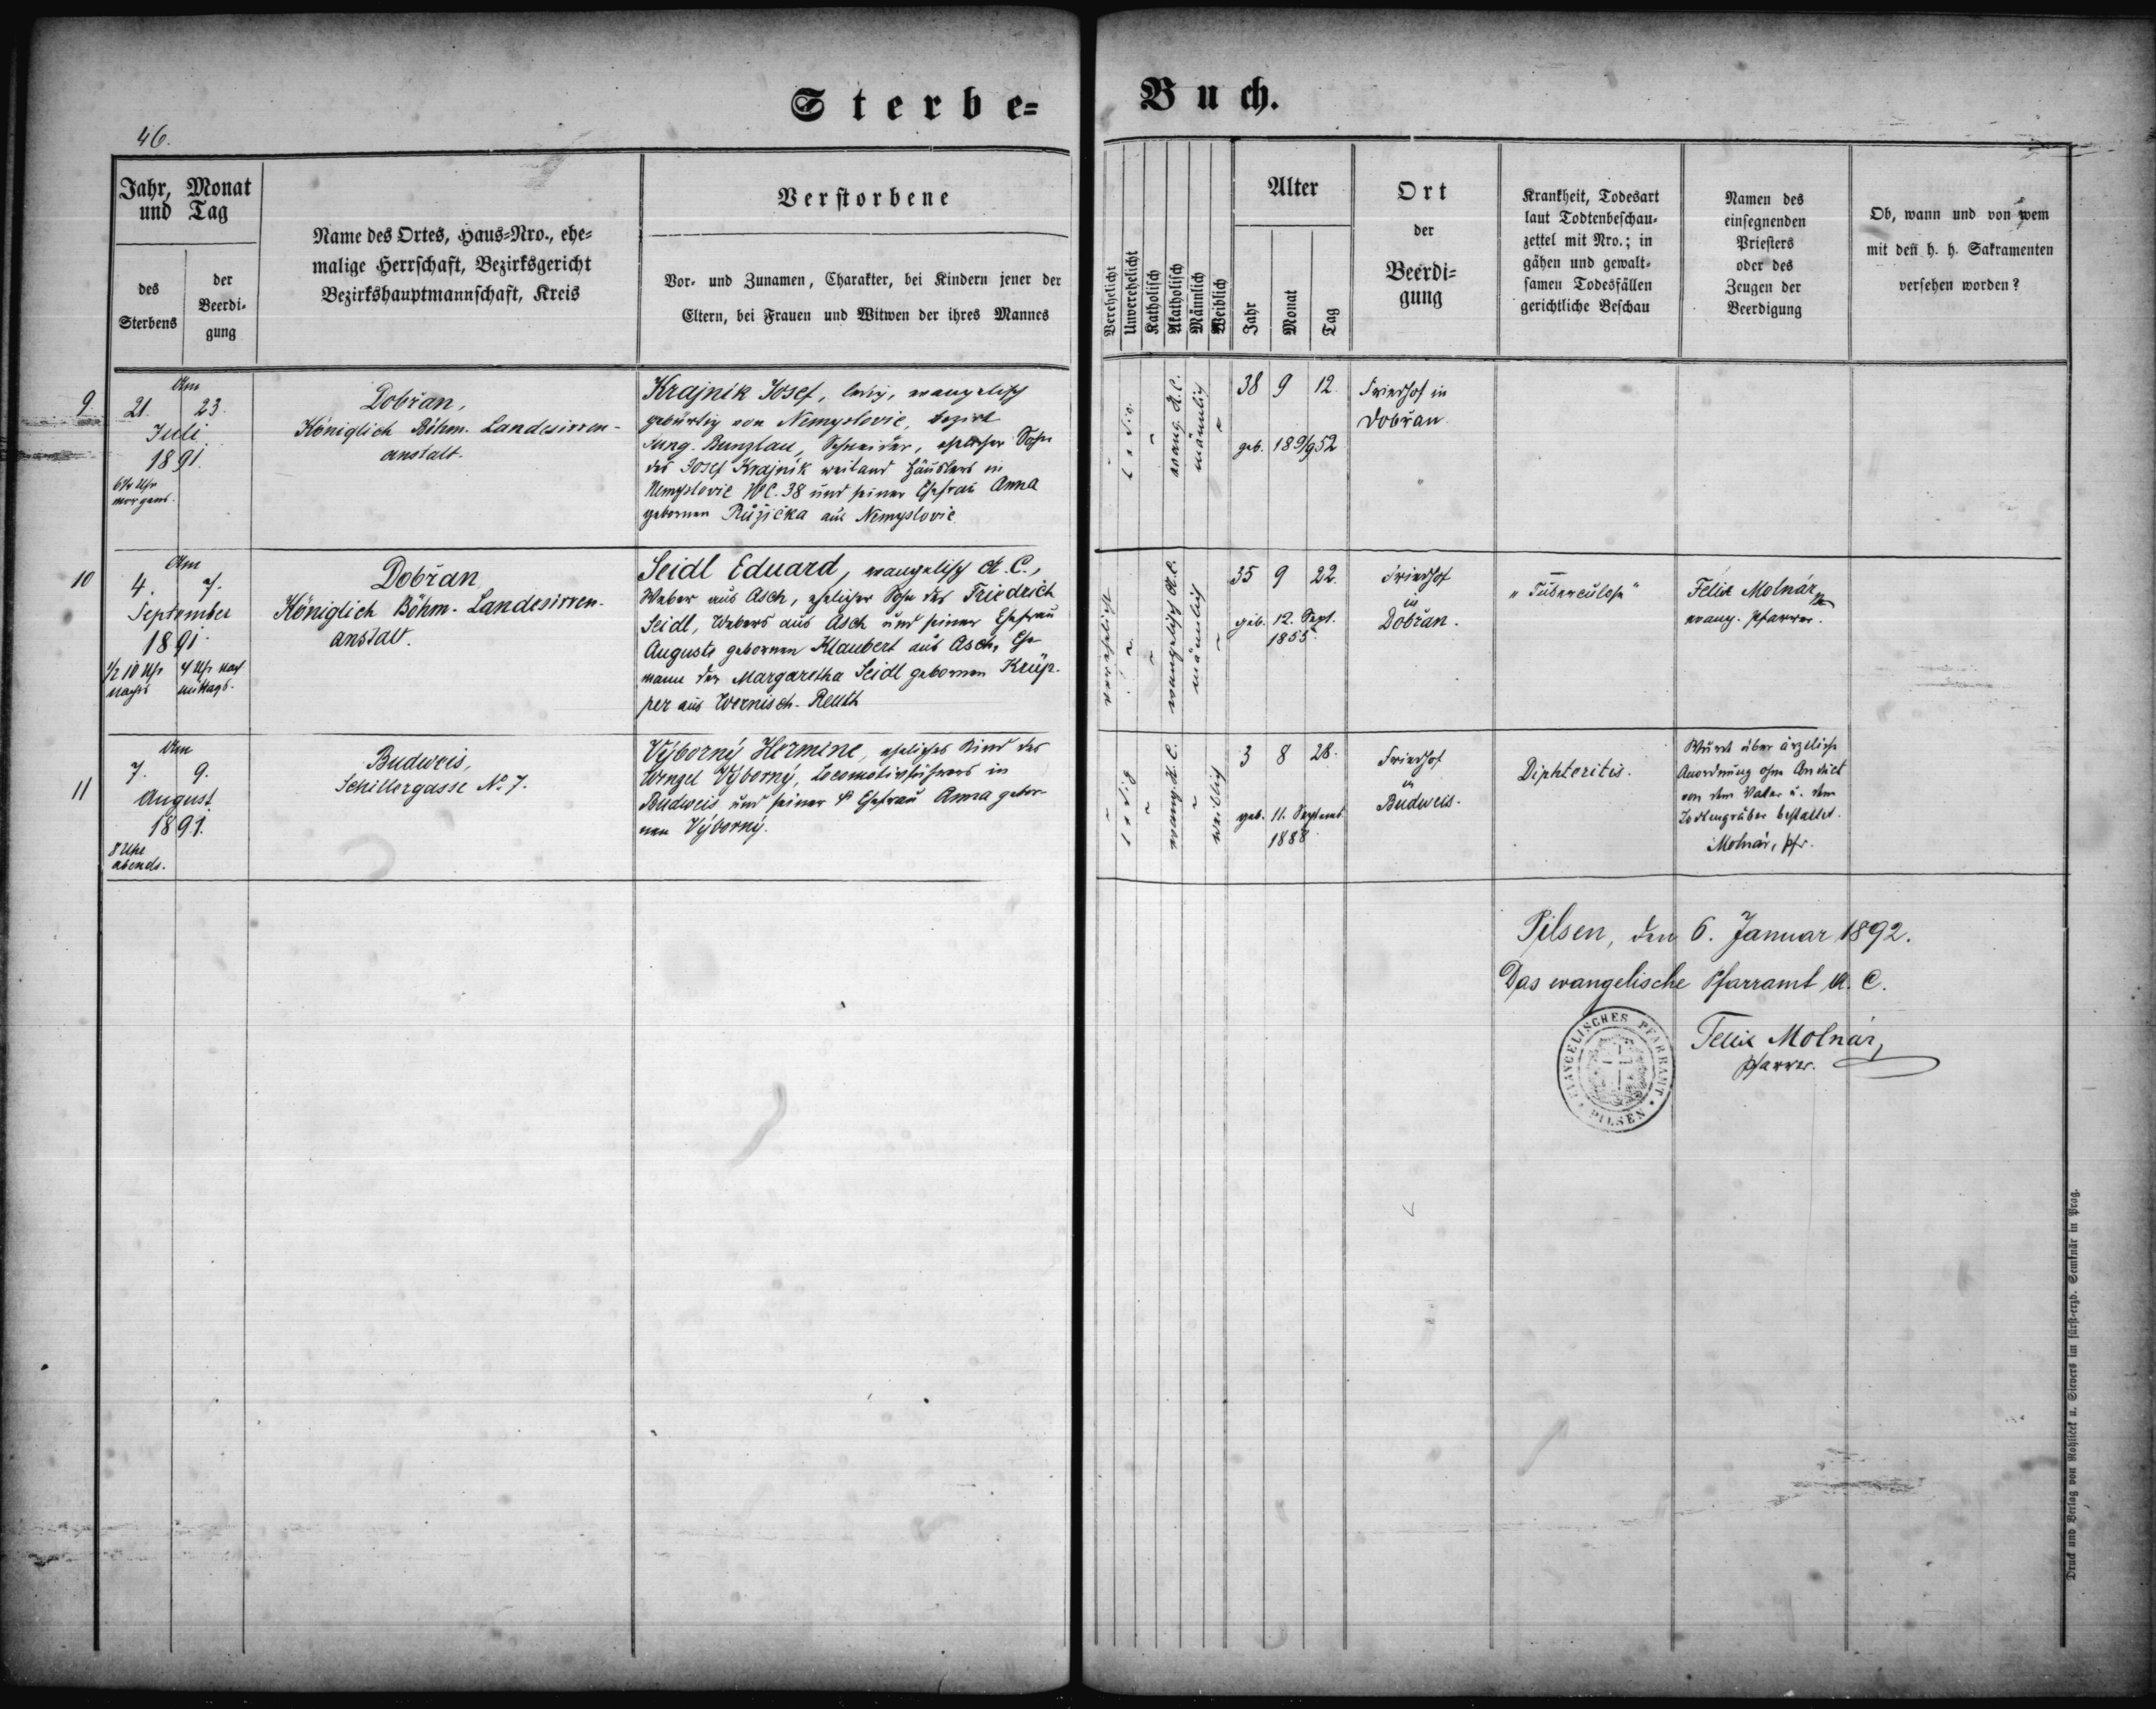 Sterbe-
Buch.
46.
Jahr, Monat
und Tag
des
Sterbens
der
Beerdi-
gung
Name des Ortes, Haus-Nro., ehe-
malige Herrschaft, Bezirksgericht
Bezirkshauptmannschaft, Kreis
Verstorbene
Vor- und Zunamen, Charakter, bei Kindern jener der
Eltern, bei Frauen und Witwen der ihres Mannes
Verehelicht
Unverehelicht
Katholisch
Akatholisch
Männlich
Weiblich
Alter
Jahr
Monat
Tag
Ort
der
Beerdi-
gung
Krankheit, Todesart
laut Todtenbeschau-
zettel mit Nro.; in
gähen und gewalt-
samen Todesfällen
gerichtliche Beschau
Namen des
einsegnenden
Priesters
oder des
Zeugen der
Beerdigung
Ob, wann und von wem
mit den h. h. Sakramenten
versehen worden?
9
Am
21. 23.
Juli
1891.
Uhr
morgens.
Dobřan,
Königlich Böhm. Landesirren-
anstalt.
Krajnik Josef, ledig, evangelisch
gebürtig von Nemyslovic, Bezirk
Jung-Bunzlau, Schneider, ehelicher Sohn
des Josef Krajnik weiland Häuslers in
Nemyslovic NC. 38 und seiner Ehefrau Anna
gebornen Růžička aus Nemyslovic
ledig.
evang. A.C.
männlich
38 9 12.
geb. 18 9/9 52
Friedhof in
Dobřan
10
Am
4. 7.
September
1891.
1/2 10 Uhr
nachts
4 Uhr nach
mittags.
Dobřan
Königlich Böhm. Landesirren-
anstalt.
Seidl Eduard, evangelisch A.C.,
Weber aus Asch, ehelicher Sohn des Friedrich
Seidl, Webers aus Asch und seiner Ehefrau
Auguste gebornen Klaubert aus Asch, Ehe-
mann der Margaretha Seidl gebornen Krüp-
per aus Wernisch-Reuth
verehelicht
evangelisch A.C.
männlich
35 9 22.
geb. 12. Sept.
1855.
Friedhof
in
Dobřan.
"Tuberculose"
Felix Molnár,
evang. Pfarrer.
11
Am
7. 9.
August
1891.
8 Uhr
abends.
Budweis,
Schillergasse No. 7.
Výborný Hermine, eheliches Kind des
Wenzel Výborný, Locomotivführers in
Budweis und seiner Ehefrau Anna gebor-
nen Výborný.
ledig
evang. A.C.
weiblich
3 8 28.
geb. 11. Septemb.
1888.
Friedhof
in
Budweis.
Diphteritis.
Wurde über ärzeliche
Anordnung ohne
von dem Vater u. dem
Todtengräber bestattet.
Molnár, Pfr.
Pilsen, den 6. Januar 1892.
Das evangelische Pfarramt A. C.
EVANGELISCHES PFARRAMT
PILSEN
Felix Molnár,
Pfarrer.
Druck und Verlag von Rohliček u. Sievers im fürst-erzb. Seminär in Prag.